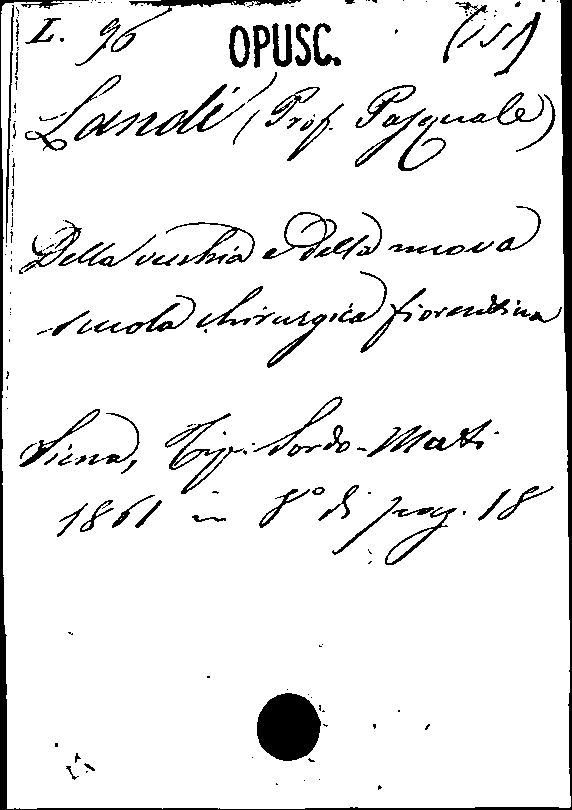 L. 96 OPUSC. (151)
Landi (Prof. Pasquale)
Della vecchia e della nuova
scuola chirurgica fiorentina
Siena, Tip. Sordo-Muti
1861 in 8° di pag. 18